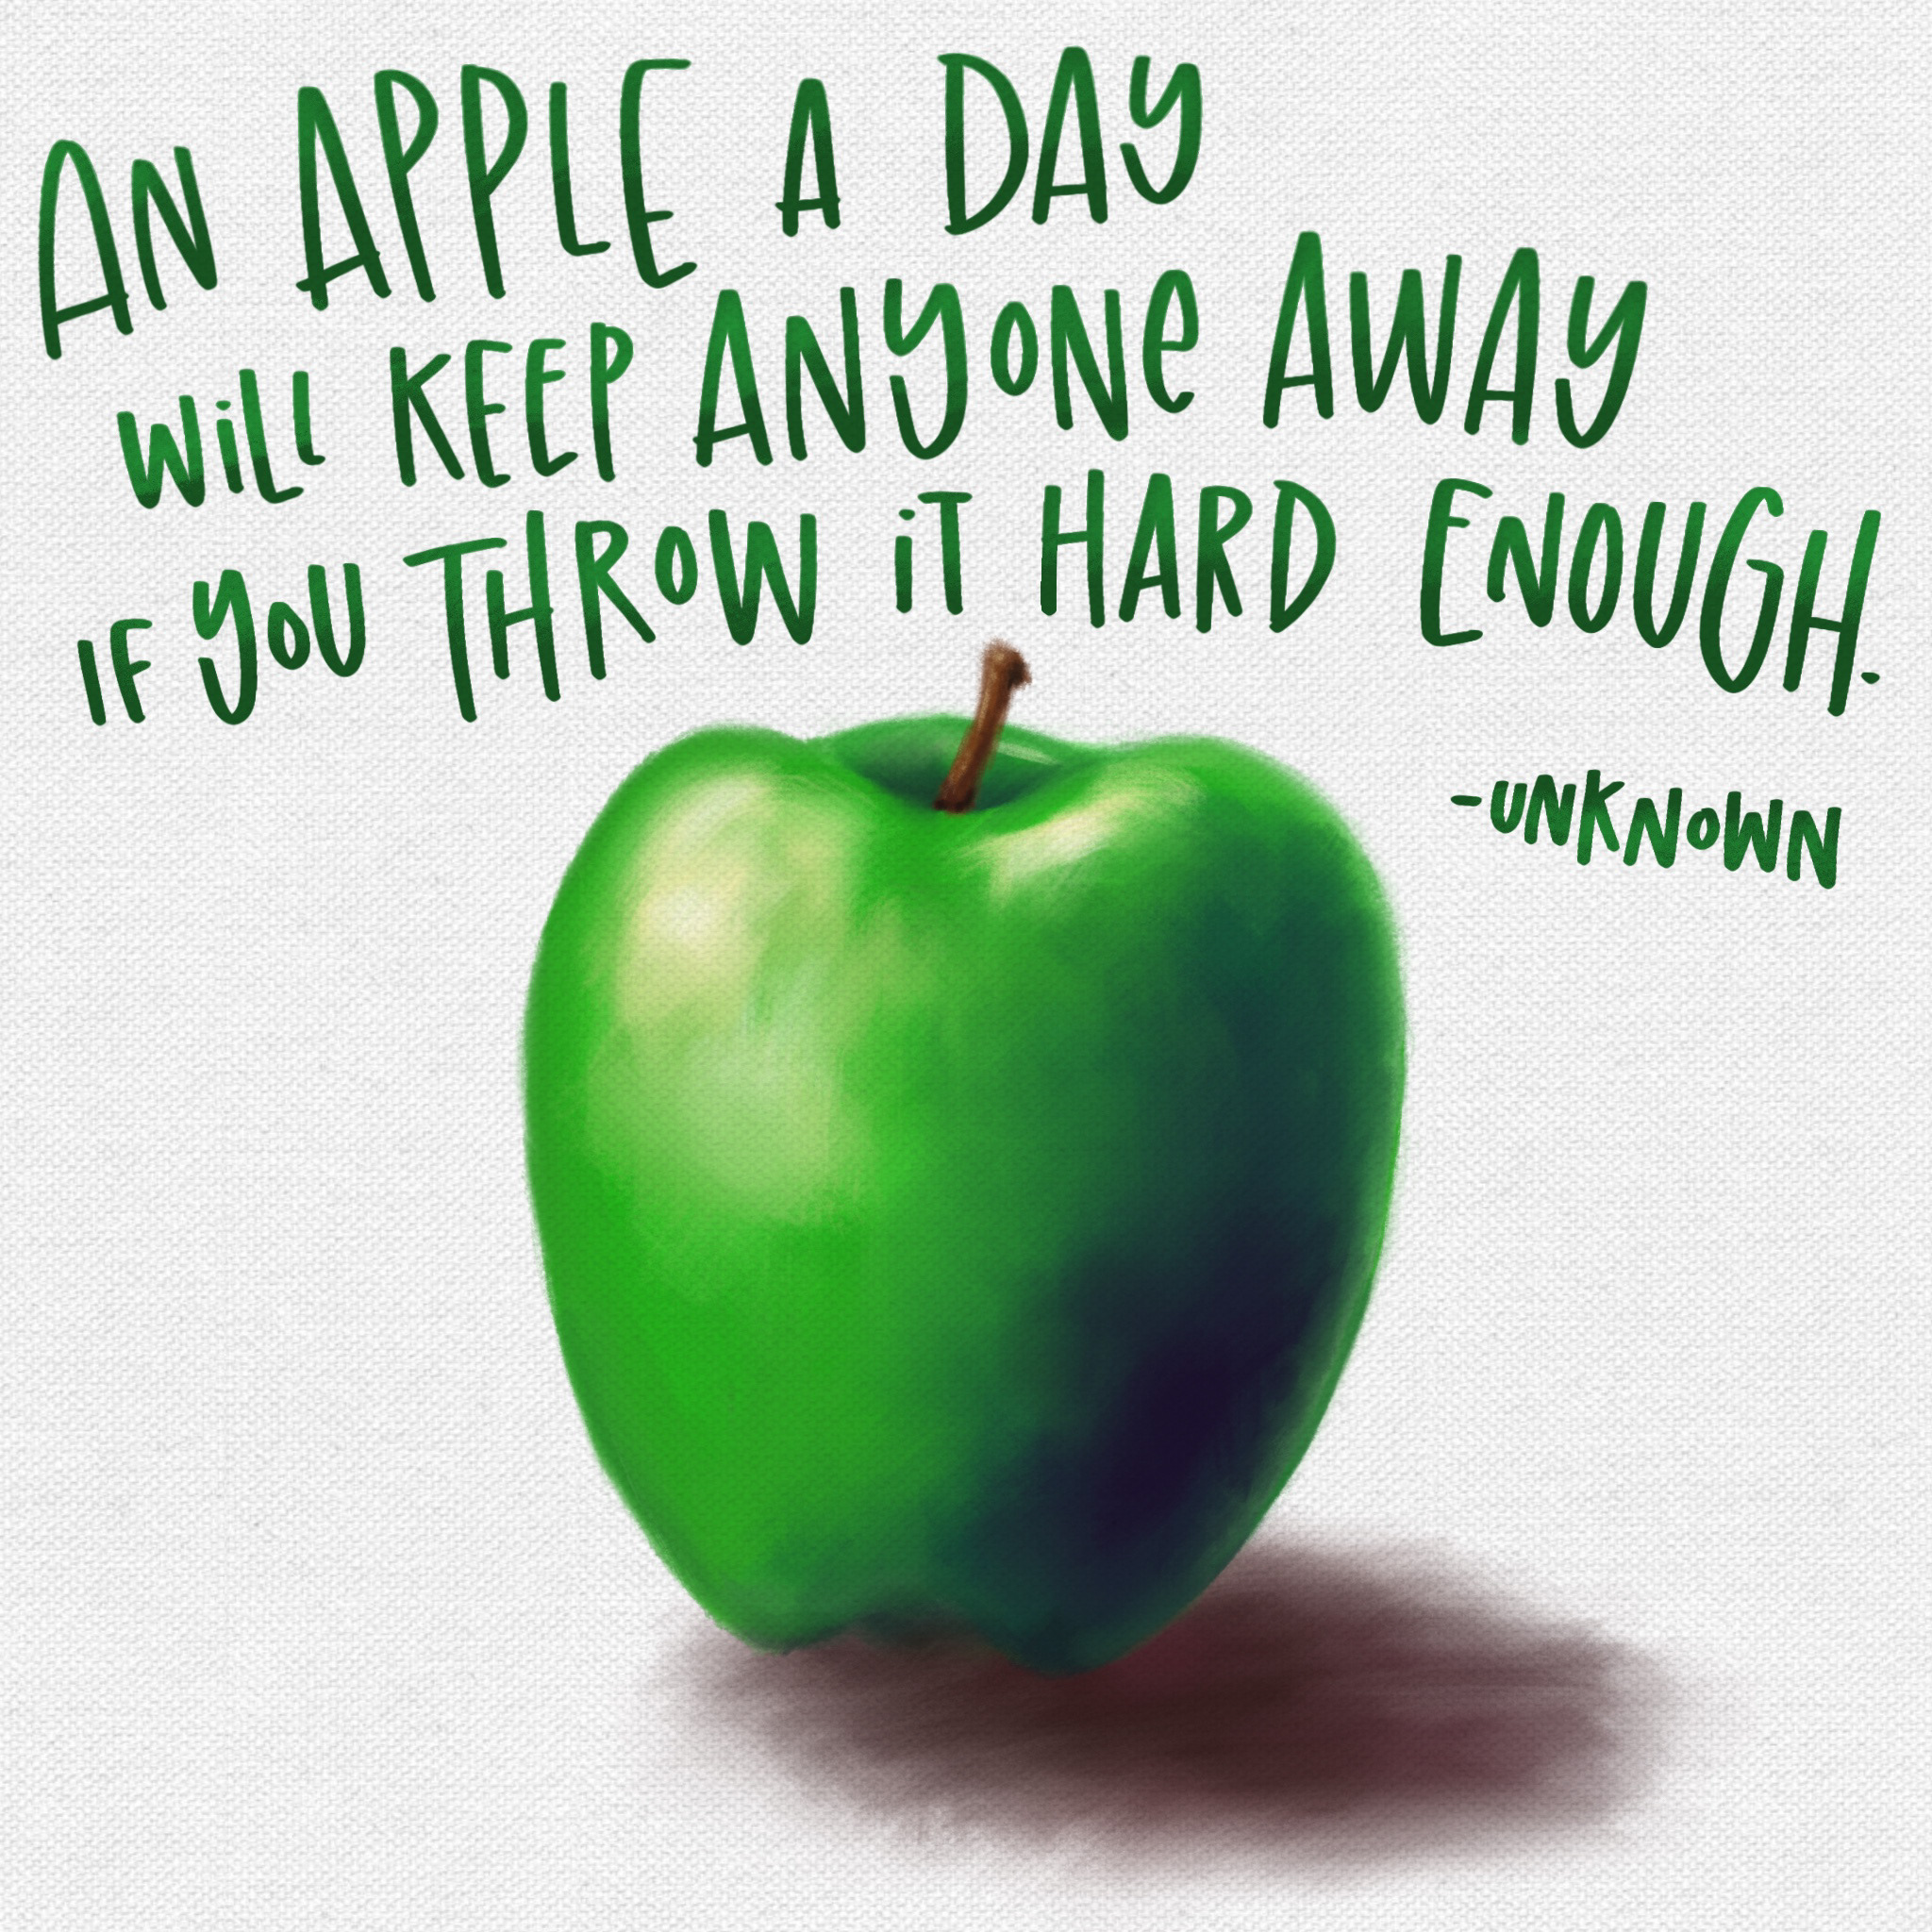 AN APPLE A DAY
WiLL KEEP ANYONE AWAY
IF YOU THROW iT HARD ENOUGH.
-UNKNOWN